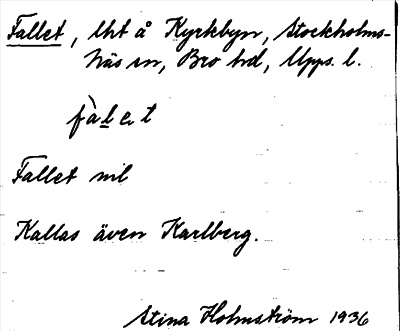 Fallet, lht å Kyrkbyn, Stockholms-
Näs sn, Bro hd, Upps. l.
fàlet
Fallet mil
Kallas även Karlberg.
Stina Holmström 1936